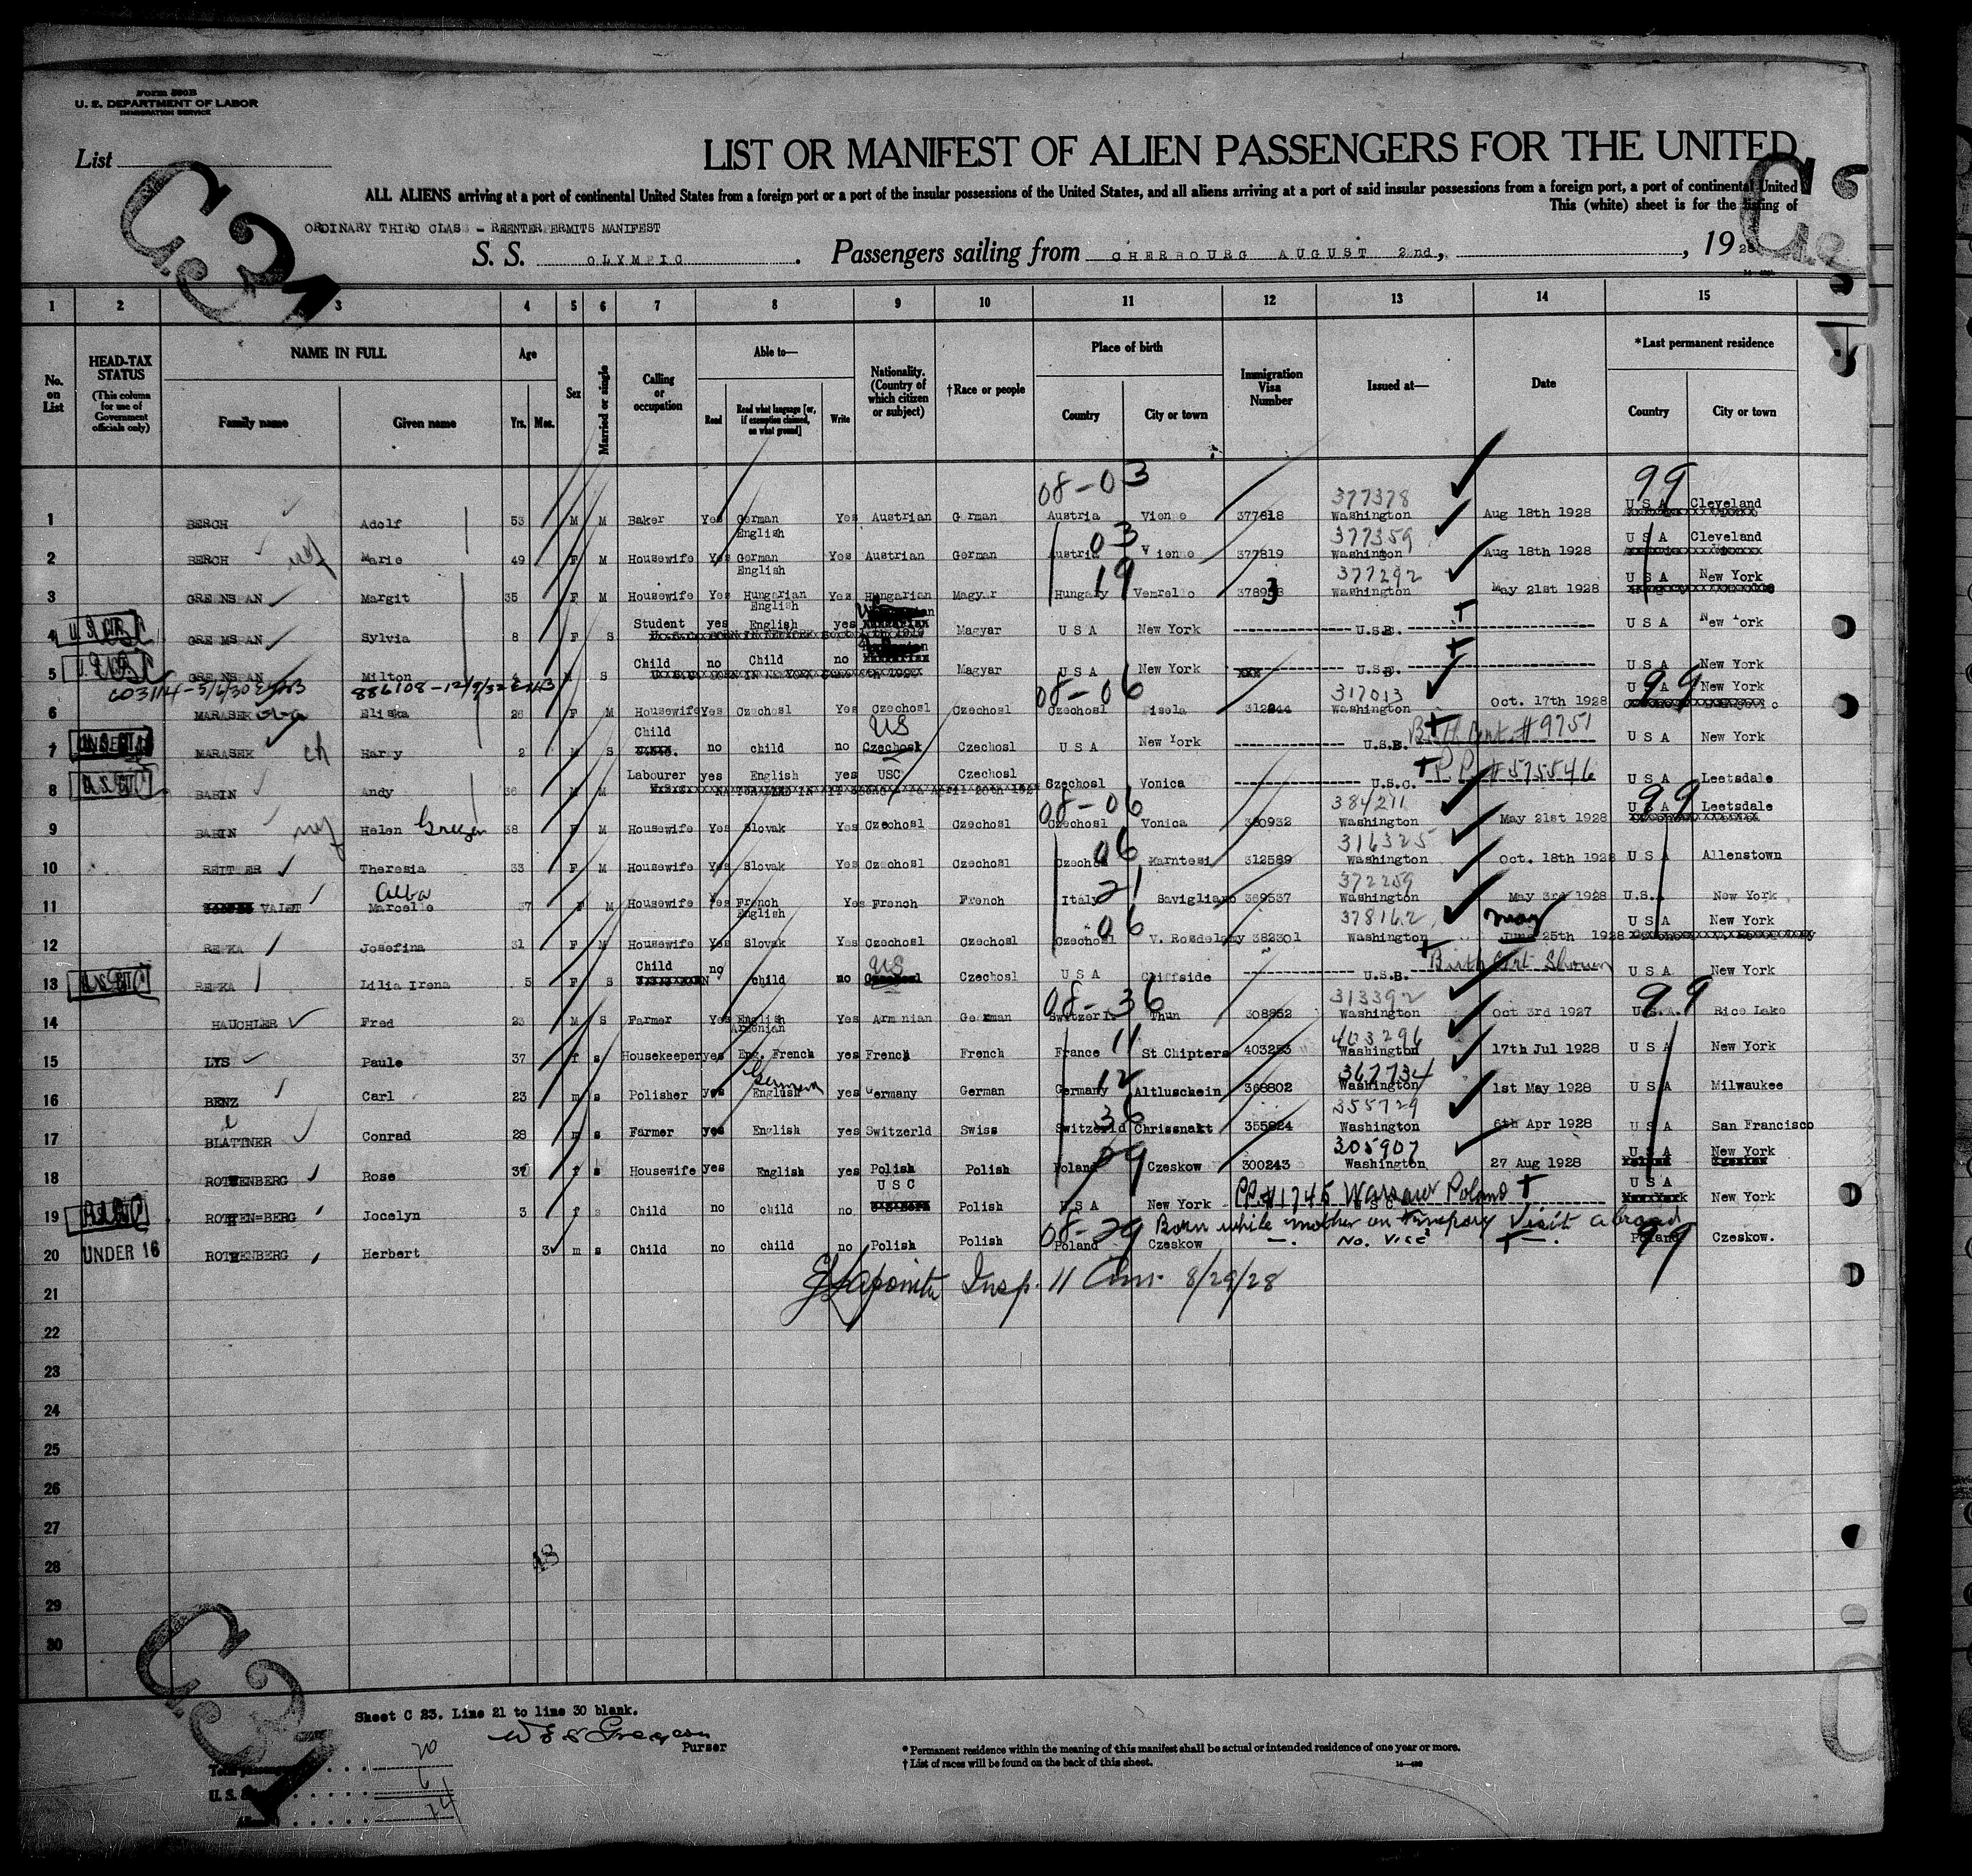 Form 500B
U. S. DEPARTMENT OF LABOR
IMMIGRATION SERVICE
List
LIST OR MANIFEST OF ALIEN PASSENGERS FOR THE UNITED
ALL ALIENS arriving at a port of continental United States from a foreign port or a port of the insular possessions of the United States, and all aliens arriving at a port of said insular possessions from a foreign port, a port of continental United
This (white) sheet is for the listing of
ORDINARY THIRD CLASS - REENTERPERMITS MANIFEST
S. S. OLYMPIC. Passengers sailing from CHERBOURG AUGUST 2nd, , 19 28
1 2 3 4 5 6 7 8 9 10 11 12 13 14 15
No. on List
HEAD-TAX STATUS (This column for use of Government officials only)
NAME IN FULL Family name Given name
Age Yrs. Mos.
Sex
Married or single
Calling or occupation
Able to— Read Read what language [or, if exemption claimed, on what ground] Write
Nationality. (Country of which citizen or subject)
†Race or people
Place of birth Country City or town
Immigration Visa Number
Issued at—
Date
*Last permanent residence Country City or town
08-03 377378 99
1 BERCH Adolf 53 M M Baker Yes German English Yes Austrian German Austria 377818 Washington Aug 18th 1928 U S A Cleveland
03 377359
2 BERCH Marie 49 F M Housewife Yes German English Yes Austrian German Austria 377819 Washington Aug 18th 1928 U S A Cleveland
19 377292
3 Margit 35 F M Housewife Yes Hungarian English Yes Hungarian Magyar Hungary Washington May 21st 1928 U S A New York
4 Sylvia 8 F S Student yes English yes Magyar U S A New York U S A New York
5 Milton S Child no Child no Magyar U S A New York U S A New York
08-06 317013 99
6 MARASEK Eliska 26 F M Housewife Yes Czechosl Yes Czechosl Czechosl Czechosl Washington Oct. 17th 1928 U S A New York
7 MARASEK ch Harry 2 M S Child no child no US Czechosl U S A New York U.S.B. Birth Cert. #9751 U S A New York
8 BABIN Andy 36 M M Labourer yes English yes USC Czechosl Czechosl Vonica U.S.C. P.P. #575546 U S A Leetsdale
08-06 384211 99
9 BABIN Helen 38 F M Housewife Yes Slovak Yes Czechosl Czechosl Czechosl Vonica 380932 Washington May 21st 1928 U S A Leetsdale
06 316325
10 Theresia 33 F M Housewife Yes Slovak Yes Czechosl Czechosl 312589 Washington Oct. 18th 1928 U S A Allenstown
21 372259
11 VALET Marcelle 37 F M Housewife Yes French English Yes French French Italy Savigliano 369537 Washington May 3rd 1928 New York
06 378162 May
12 Josefina 31 F M Housewife Yes Slovak Yes Czechosl Czechosl Czechosl 382301 Washington June 25th 1928 U S A New York
13 Lilia Irena 5 F S Child no child no US Czechosl U S A Cliffside U.S.B. Birth Cert Shown U S A New York
08-36 313392 99
14 HAUCHLER Fred 23 M S Farmer Yes English Armenian Yes Armenian German Thun 308852 Washington Oct 3rd 1927 U.S.A. Rice Lake
11 403296
15 LYS Paule 37 f s Housekeeper yes Eng. French yes French French France St Chipters Washington 17th Jul 1928 U S A New York
German 12 367734
16 BENZ Carl 23 m s Polisher yes English yes Germany German Germany 368802 Washington 1st May 1928 U S A Milwaukee
36 355729
17 BLATTNER Conrad 28 m s Farmer yes English yes Switzerld Swiss Switzerld Washington 6th Apr 1928 U S A San Francisco
305907
18 ROTHENBERG Rose 37 f s Housewife yes English yes Polish Polish Poland Czeskow 300243 Washington 27 Aug 1928 U S A New York
19 Jocelyn 3 f s Child no child no U S C Polish U S A New York PP #1745 Warsaw Poland U S A New York
08-29 Born while mother on temporary Visit abroad 99
UNDER 16
20 ROTHENBERG Herbert 3 m s Child no child no Polish Polish Poland Czeskow No. Vise Poland Czeskow.
21 Insp. 8/29/28
22
23
24
25
26
27
28
29
30
Sheet C 23. Line 21 to line 30 blank.
Purser
20
6
14
* Permanent residence within the meaning of this manifest shall be actual or intended residence of one year or more.
† List of races will be found on the back of this sheet.